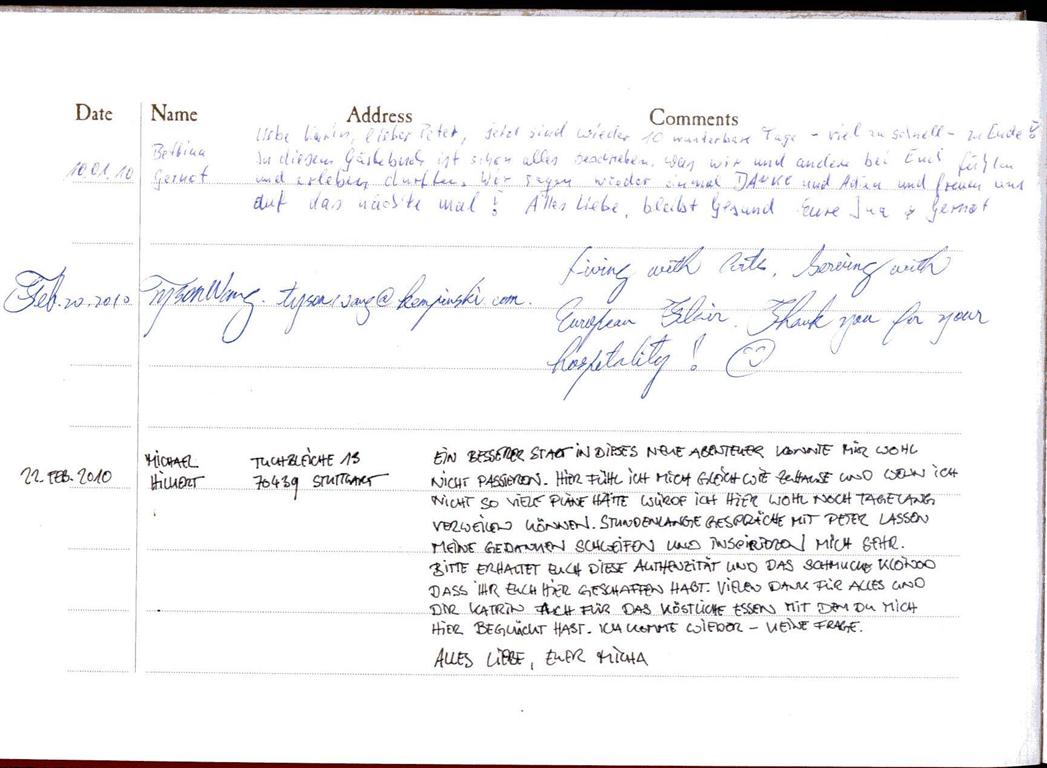 Date Name Address Comments
Liebe Karin, lieber Peter, jetzt sind wieder 10 wunderbare Tage - viel zu schnell - zu Ende!
10.01.10 Bettina In diesem Gästebuch ist schon alles geschrieben, was wir und andere bei Euch fühlen
Gernot und erleben durften. Wir sagen wieder einmal DANKE und und freuen uns
auf das nächste mal! Alles Liebe, bleibt Gesund Eure & Gernot
Living with Arts, Serving with
Feb. 20. 2010 Tyson Wang. tysonwang@kempinski.com.
European Flair. Thank you for your
hospitality! ☺
EIN BESSERER START IN DIESES NEUE ABENTEUER KONNTE MIR WOHL
22. FEB. 2010 MICHAEL TUCHBLEICHE 13
HILLERT 70439 STUTTGART NICHT PASSIEREN. HIER FÜHL ICH MICH GLEICH WIE ZUHAUSE UND WENN ICH
NICHT SO VIELE PLÄNE HÄTTE WÜRDE ICH HIER WOHL NOCH TAGELANG
VERWEILEN KÖNNEN. STUNDENLANGE GESPRÄCHE MIT PETER LASSEN
MEINE GEDANKEN SCHWEIFEN UND INSPIRIEREN MICH SEHR.
BITTE ERHALTET EUCH DIESE AUTHENZITÄT UND DAS SCHMUCKE KLEINOD
DASS IHR EUCH HIER GESCHAFFEN HABT. VIELEN DANK FÜR ALLES UND
DIR KATRIN AUCH FÜR DAS KÖSTLICHE ESSEN MIT DEM DU MICH
HIER BEGLÜCKT HAST. ICH KOMME WIEDER - KEINE FRAGE.
ALLES LIEBE, EUER MICHA